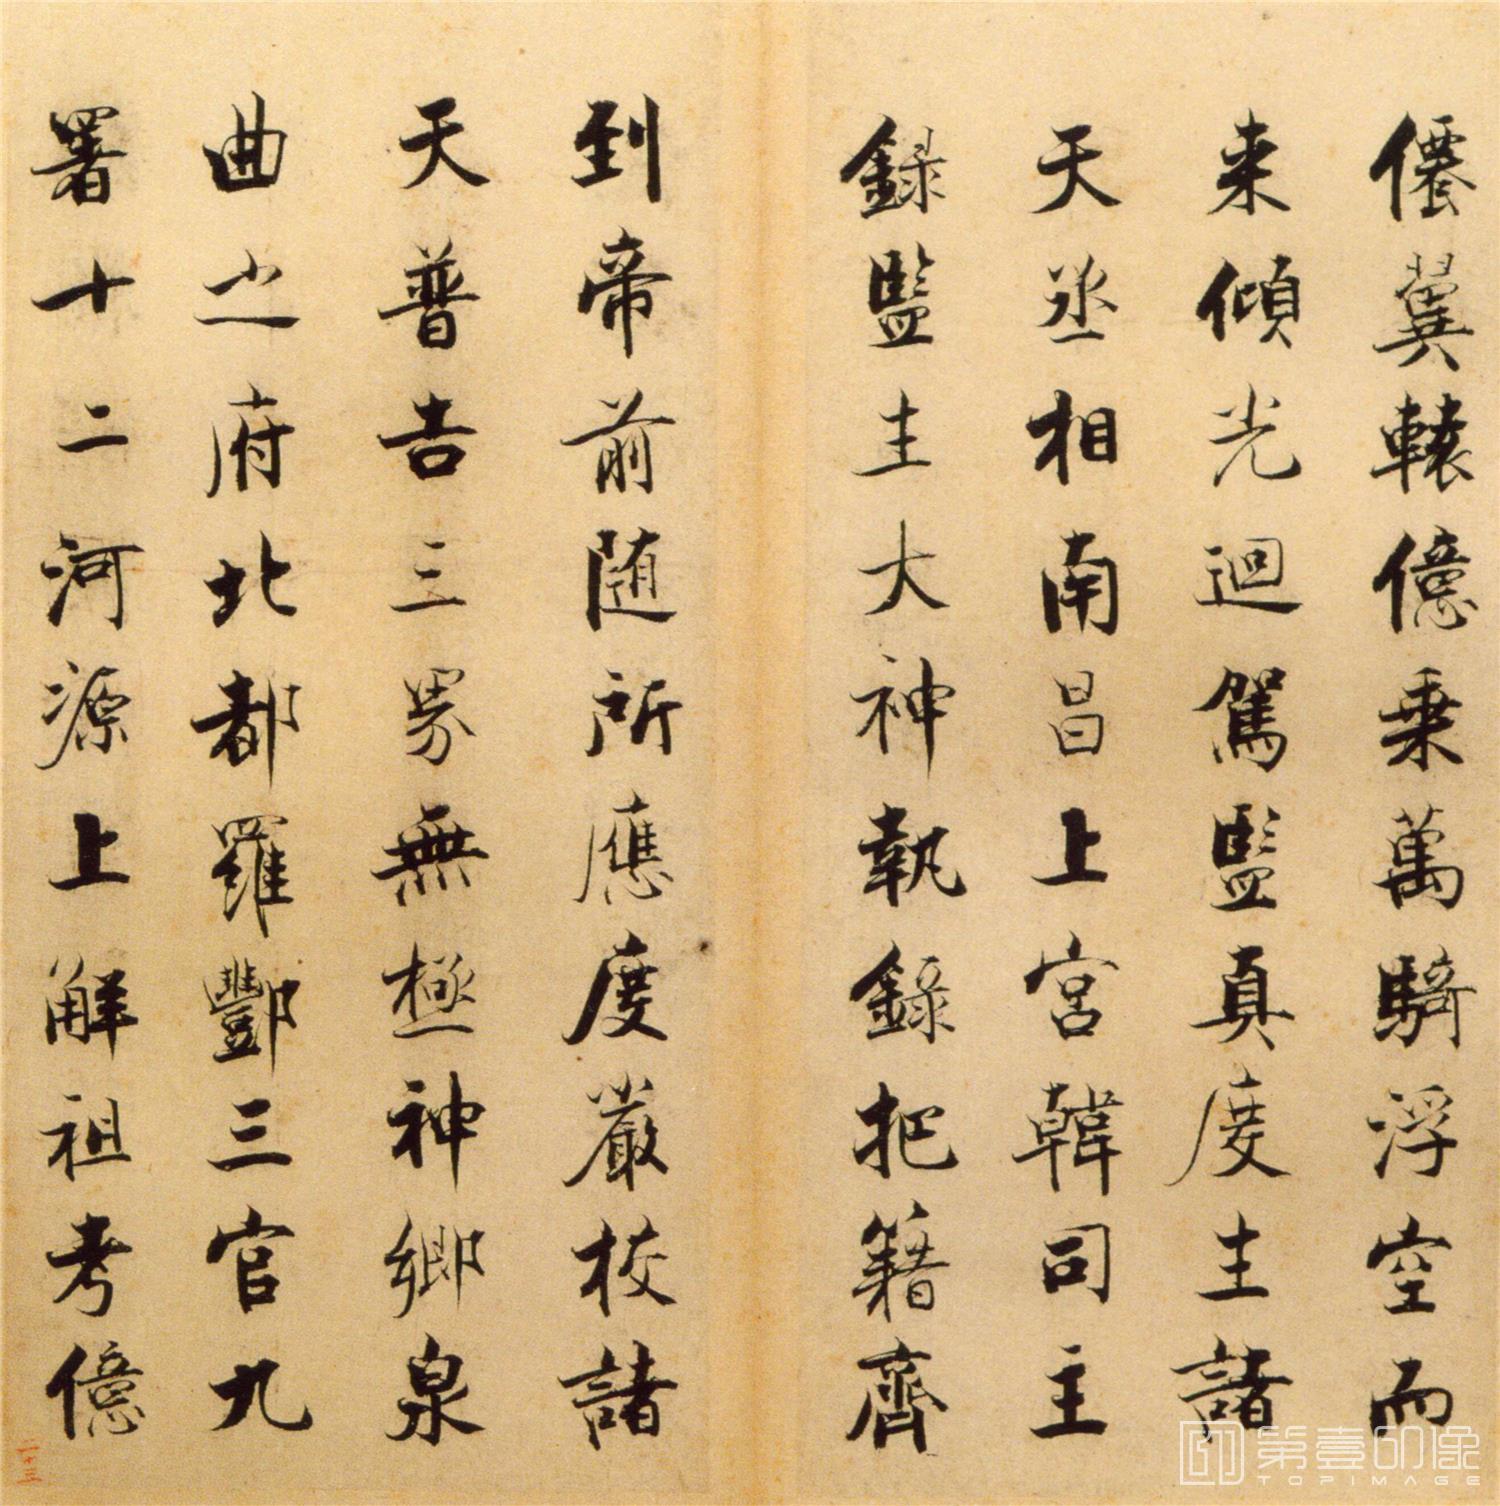 僊翼轅億乗萬騎浮空而
来傾光迴駕監真度主諸
天丞相南昌上宮韓司主
錄監主大神執錄把籍齊
到帝前随所應度嚴校諸
天普告三界無極神鄉泉
曲之府北都羅酆三官九
署十二河源上解祖考億
二十三
第壹印像
TOPIMAGE